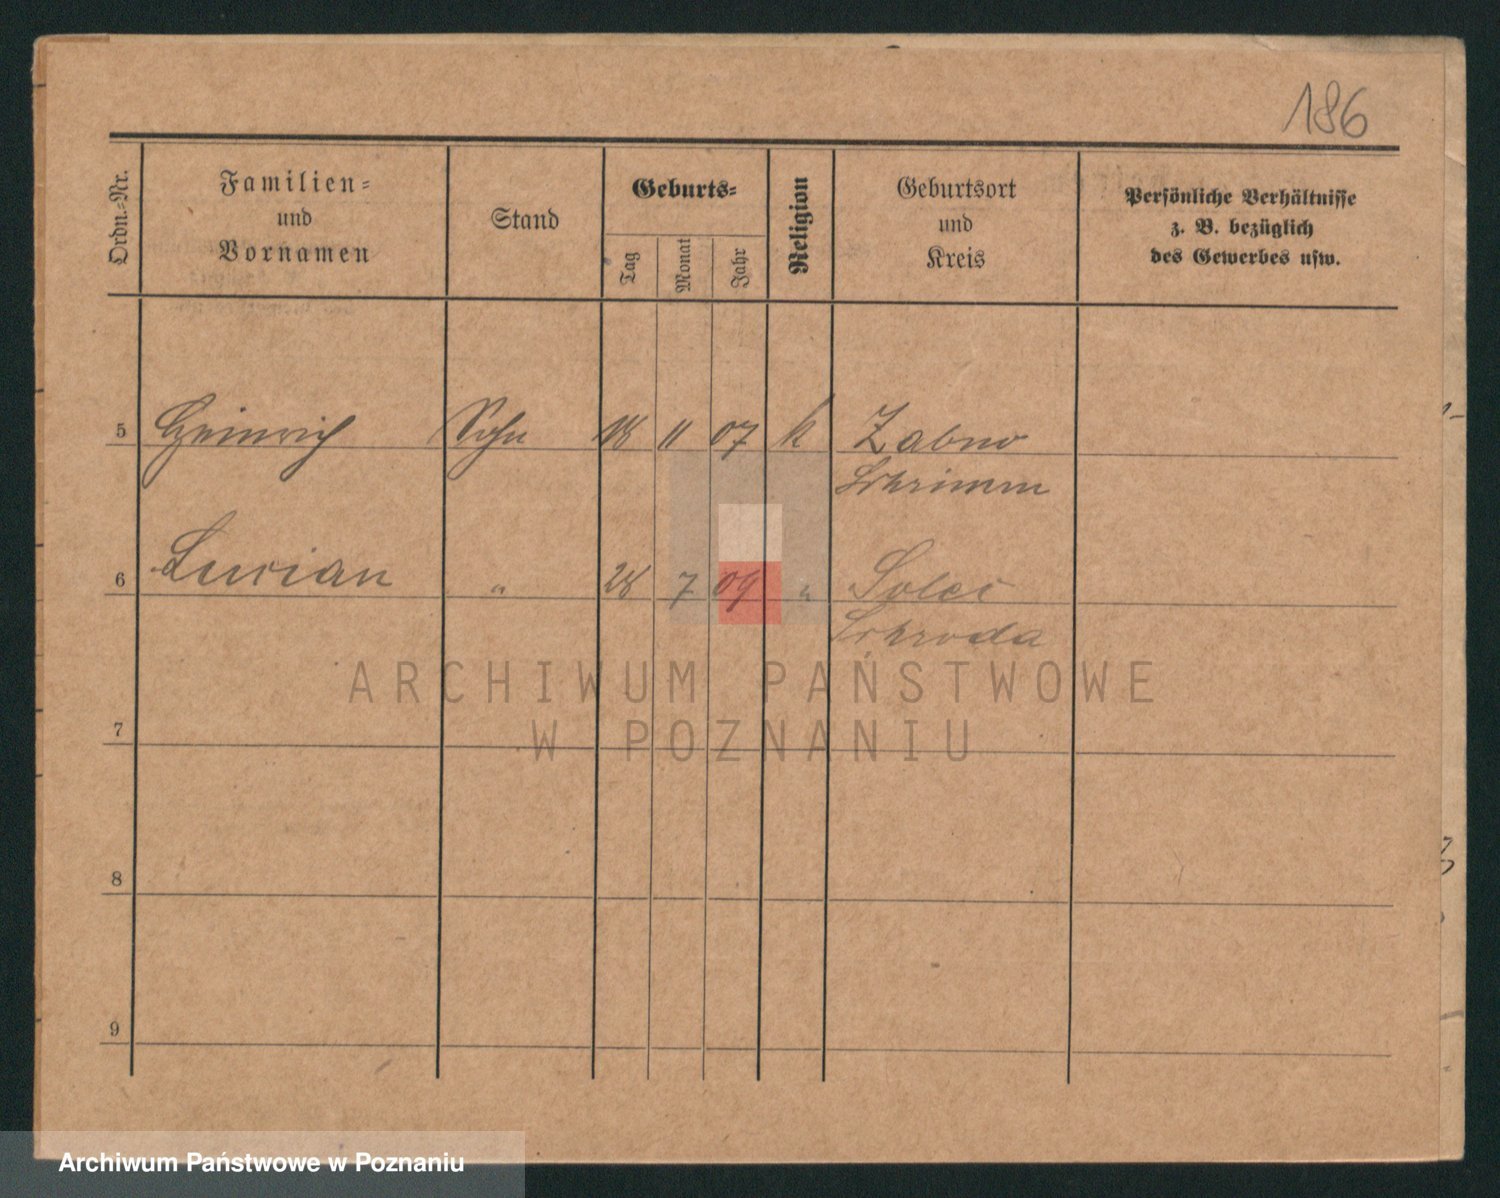 186
Ordn.-Nr.
Familien-
und
Vornamen
Stand
Geburts-
Tag
Monat
Jahr
Religion
Geburtsort
und
Kreis
Persönliche Verhältnisse
z. B. bezüglich
des Gewerbes usw.
5 Heinrich Sohn 18 11 07 k Zabno
Schrimm
6 Lucian " 28 7 09 " Solec
Schroda
7
8
9
ARCHIWUM PAŃSTWOWE
W POZNANIU
Archiwum Państwowe w Poznaniu